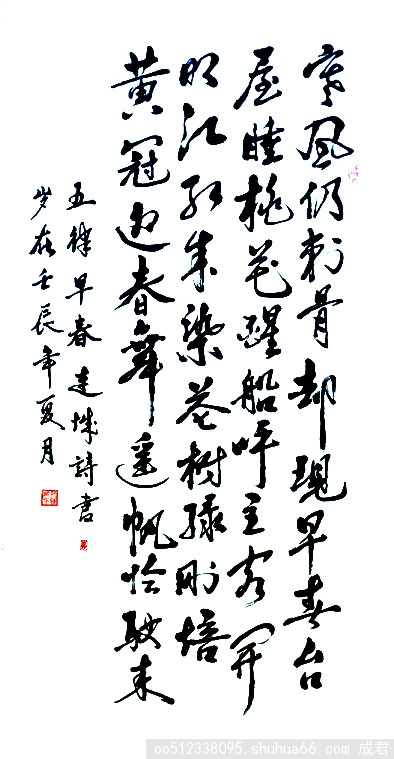 寒风仍刺骨却现早春台
屋睡桃花醒船呼主客开
明江红染树绿刚培
黄冠迎春舞遥帆恰驶来
五律早春城詩书
岁在壬辰年夏月
oo512338095 shuhua66.com 成君